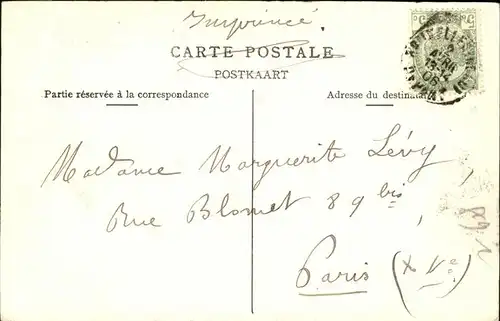 Imprimé
CARTE POSTALE
POSTKAART
Partie réservée à la correspondance
Adresse du destinata
Madame Marguerite Lévy
Rue Blomet 89 bis
Paris (XVe)